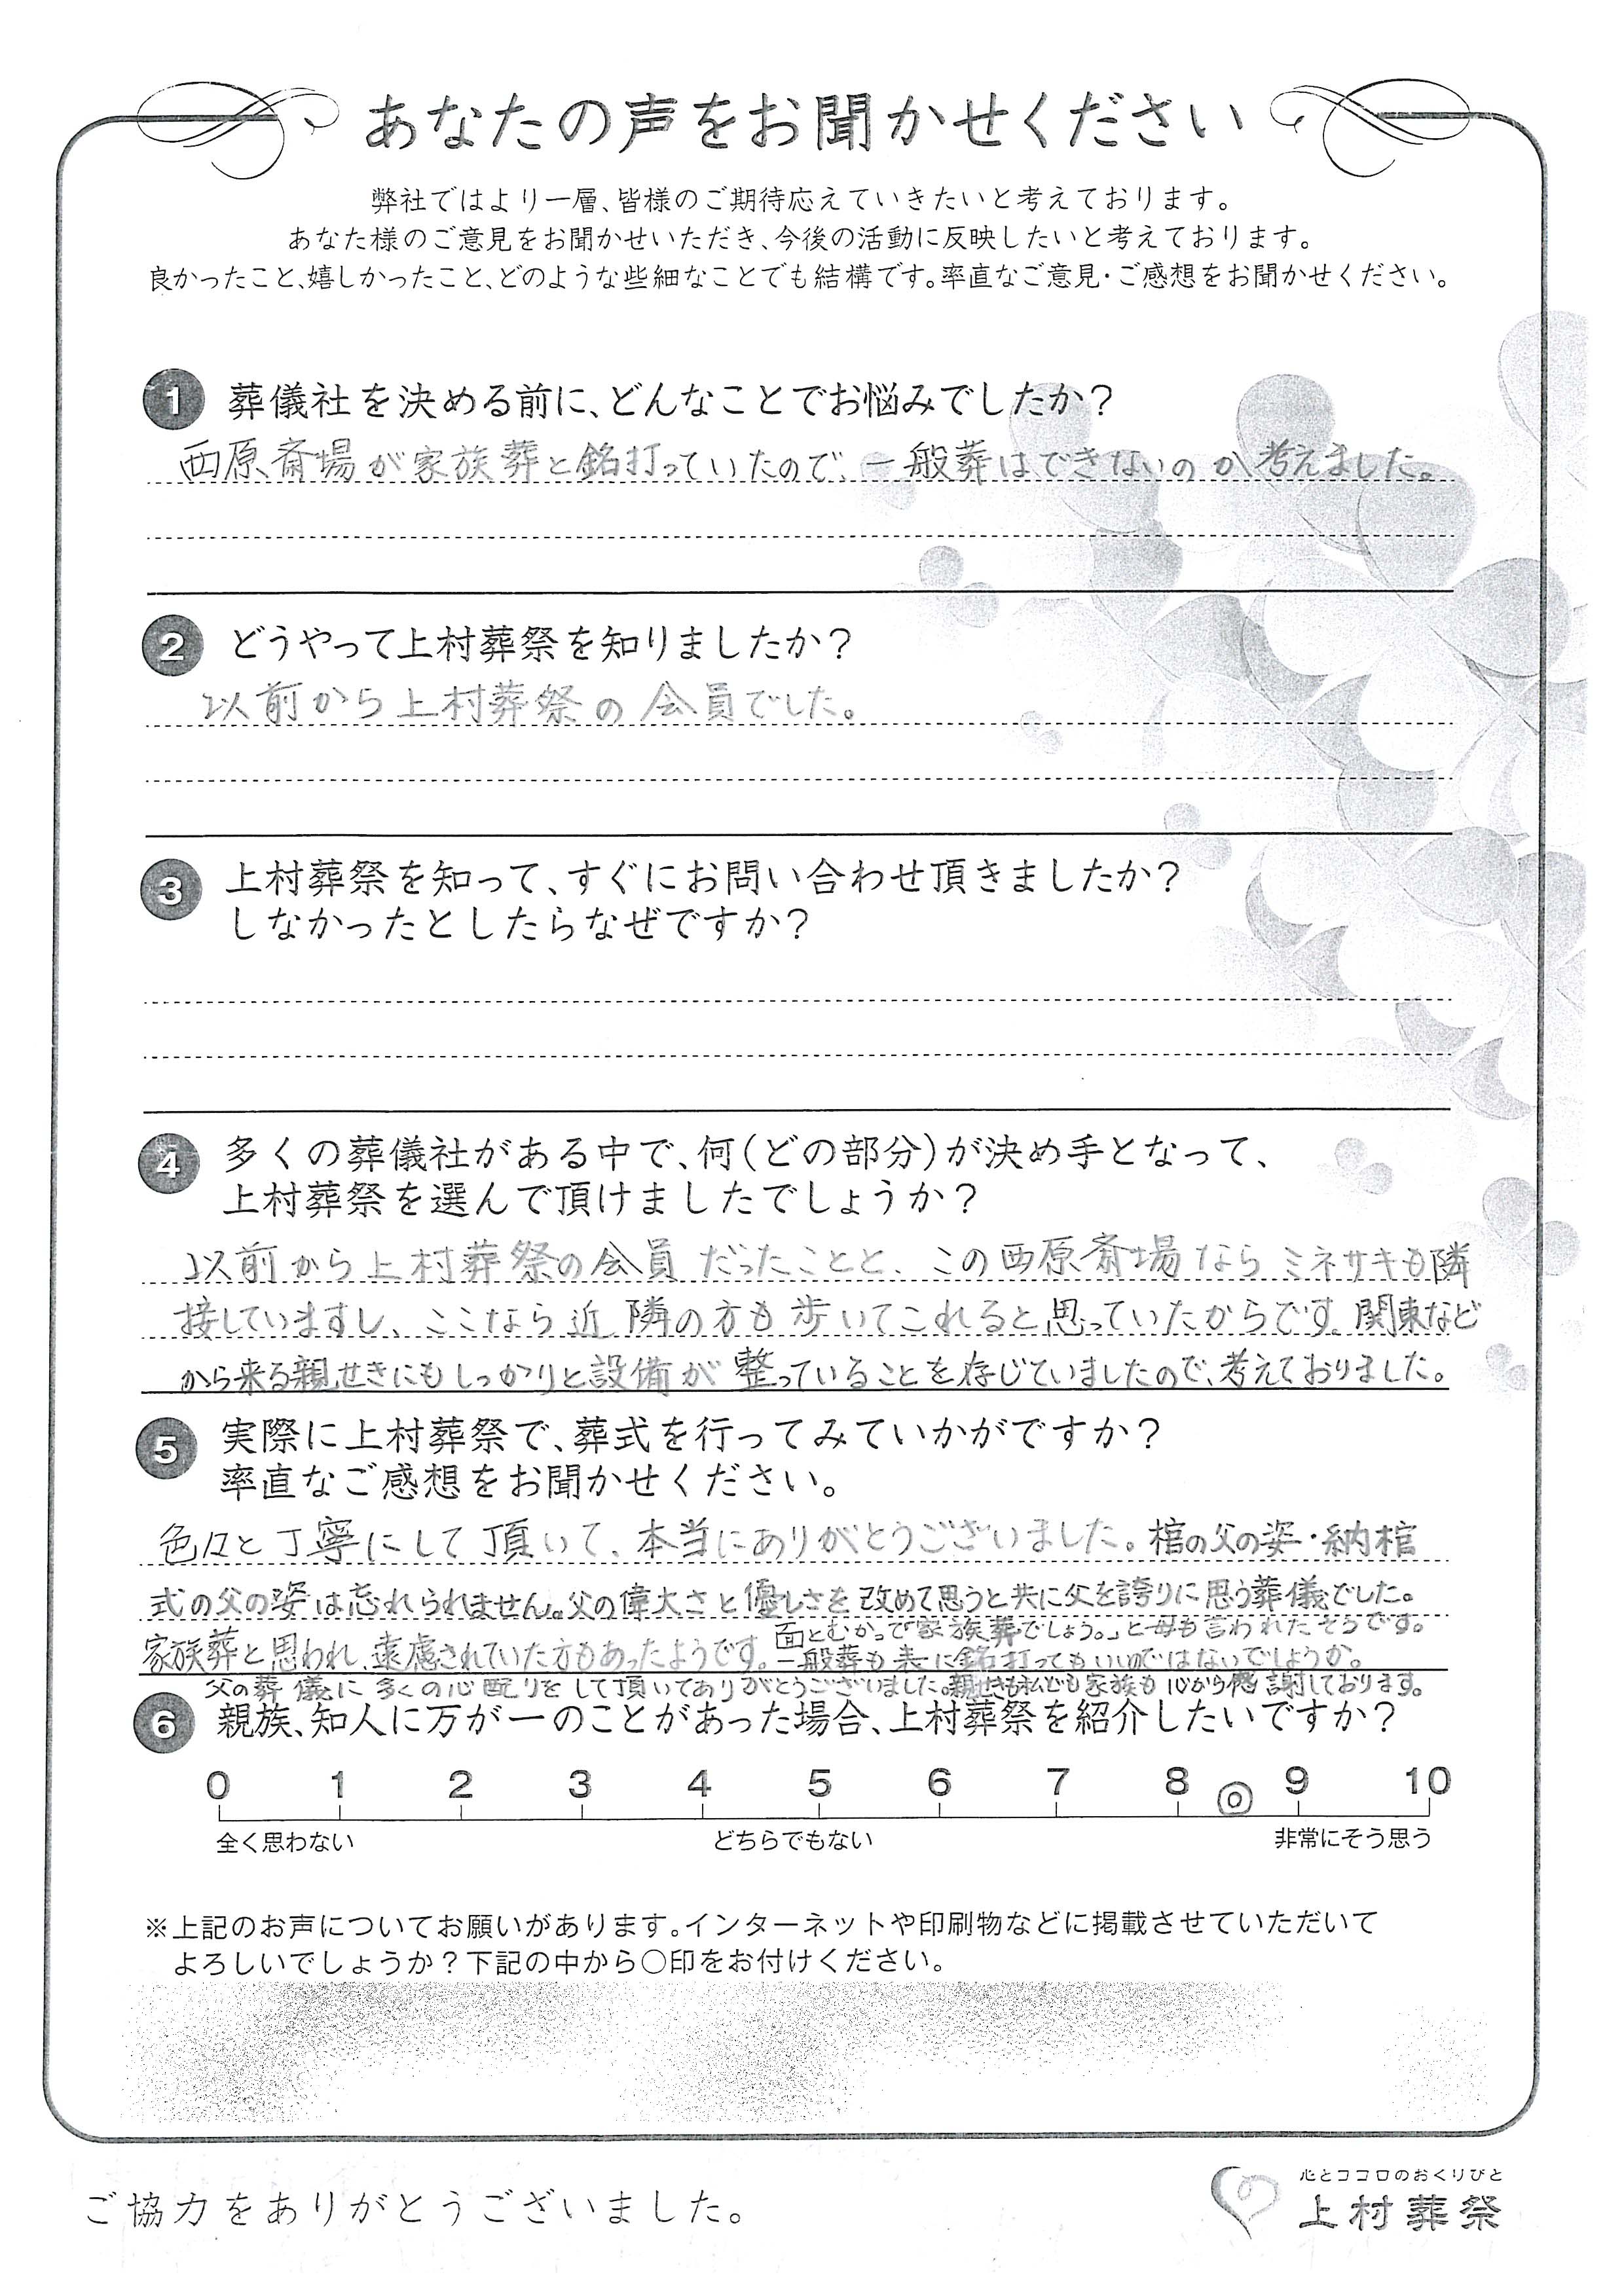 あなたの声をお聞かせください
弊社ではより一層、皆様のご期待応えていきたいと考えております。
あなた様のご意見をお聞かせいただき、今後の活動に反映したいと考えております。
良かったこと、嬉しかったこと、どのような些細なことでも結構です。率直なご意見・ご感想をお聞かせください。
1 葬儀社を決める前に、どんなことでお悩みでしたか？
西原斎場が家族葬と銘打っていたので、一般葬はできないのか考えました。
2 どうやって上村葬祭を知りましたか？
以前から上村葬祭の会員でした。
3 上村葬祭を知って、すぐにお問い合わせ頂きましたか？
しなかったとしたらなぜですか？
4 多くの葬儀社がある中で、何（どの部分）が決め手となって、
上村葬祭を選んで頂けましたでしょうか？
以前から上村葬祭の会員だったことと、この西原斎場ならミネサキも隣
接していますし、ここなら近隣の方も歩いてこれると思っていたからです。関東など
から来る親せきにもしっかりと設備が整っていることを存じていましたので、考えておりました。
5 実際に上村葬祭で、葬式を行ってみていかがですか？
率直なご感想をお聞かせください。
色々と丁寧にして頂いて、本当にありがとうございました。棺の父の姿・納棺
式の父の姿は忘れられません。父の偉大さと優しさを改めて思うと共に父を誇りに思う葬儀でした。
家族葬と思われ、遠慮されていた方もあったようです。面とむかって「家族葬でしょう。」と母も言われたそうです。
一般葬も表に銘打ってもいいのではないでしょうか。
父の葬儀に多くの心配りをして頂いてありがとうございました。親せきも私ども家族も心から感謝しております。
6 親族、知人に万が一のことがあった場合、上村葬祭を紹介したいですか？
0 1 2 3 4 5 6 7 8 ◎ 9 10
全く思わない どちらでもない 非常にそう思う
※上記のお声についてお願いがあります。インターネットや印刷物などに掲載させていただいて
よろしいでしょうか？下記の中から○印をお付けください。
ご協力をありがとうございました。
心とココロのおくりびと
上村葬祭